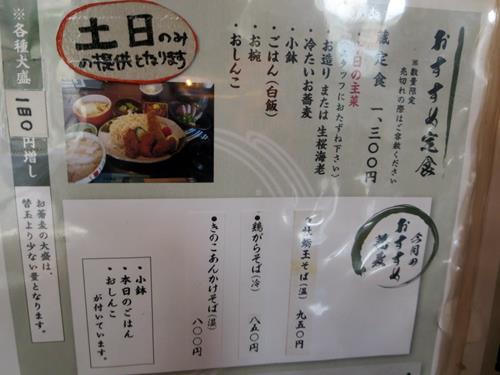 おすすめ定食
※数量限定
売切れの際はご容赦ください
蔵定食 一、三〇〇円
日の主菜
スタッフにおたずね下さい)
・お造り または 生桜海老
・冷たいお蕎麦
・小鉢
・ごはん(白飯)
・お椀
・おしんこ
土日のみ
の提供となります
※各種大盛
一四〇
円増し
お蕎麦の大盛は、
替玉より少ない量となります。
今月の
おすすめ
蕎麦
牡蛎玉そば(温) 九五〇円
●鶏がらそば(冷) 八五〇円
●きのこあんかけそば(温) 八〇〇円
・小鉢
・本日のごはん
・おしんこ
が付いています。